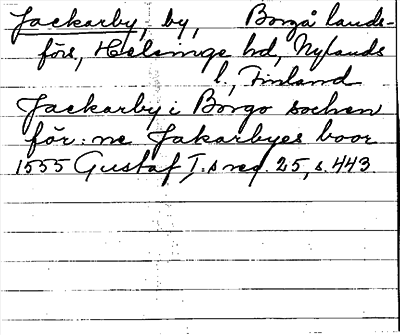 Jackarby, by, Borgå lands-
förs, Helsinge hd, Nylands
l., Finland
Jackarby i Borgo sochen
för: ne Jakarbyes boor
1555 Gustaf I.s reg. 25, s. 443.